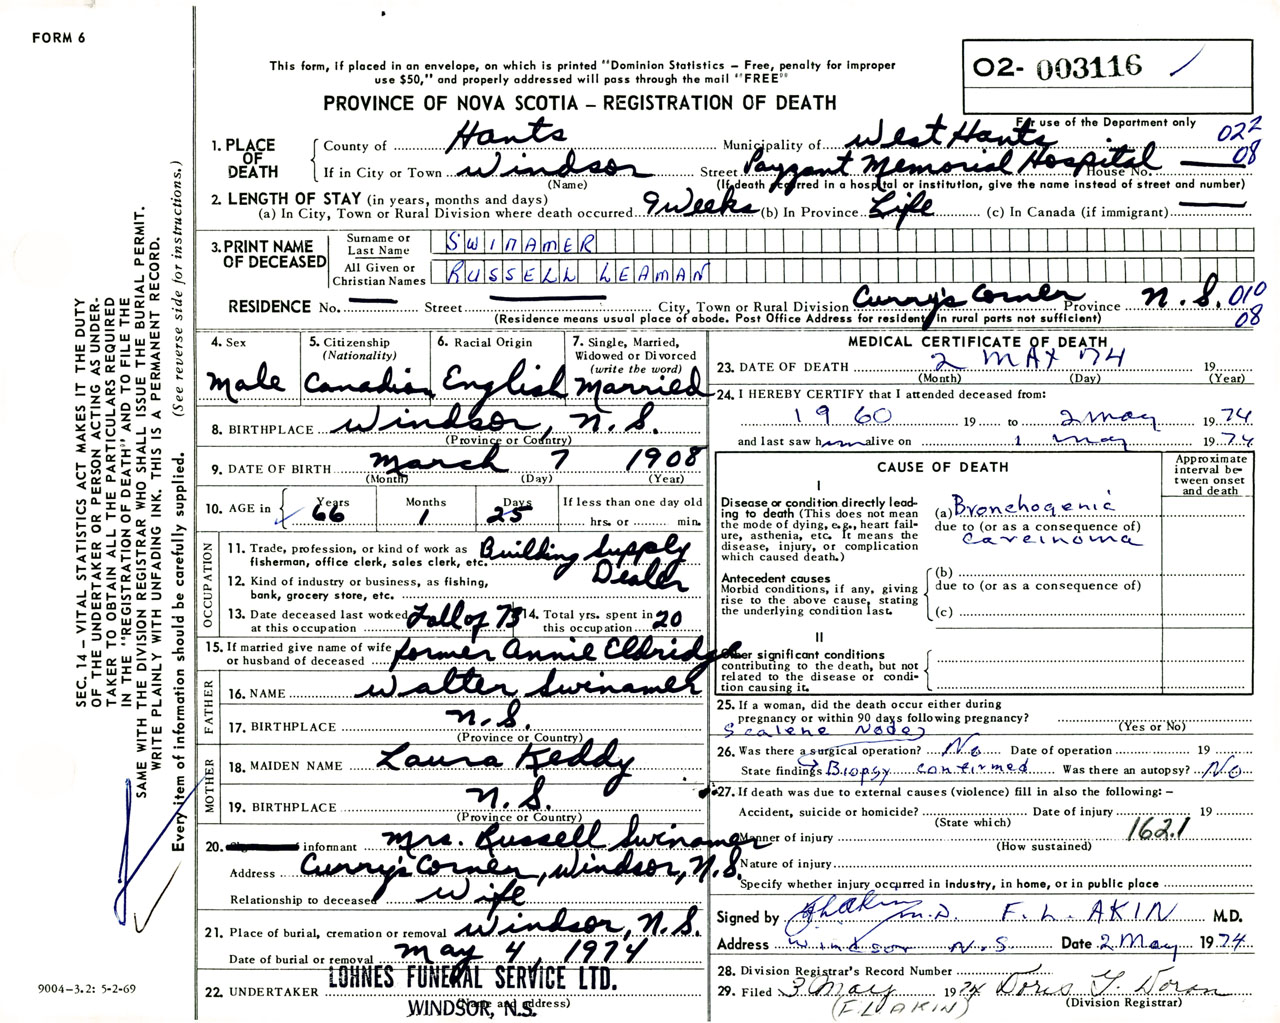 FORM 6
This form, if placed in an envelope, on which is printed "Dominion Statistics – Free, penalty for improper
use $50," and properly addressed will pass through the mail "FREE"
O2- 003116
PROVINCE OF NOVA SCOTIA – REGISTRATION OF DEATH
For use of the Department only
022
08
1. PLACE OF DEATH
County of Hants Municipality of West Hants
If in City or Town Windsor Street Payzant Memorial Hospital House No.
(Name) (If death occurred in a hospital or institution, give the name instead of street and number)
2. LENGTH OF STAY (in years, months and days)
(a) In City, Town or Rural Division where death occurred 9 weeks (b) In Province Life (c) In Canada (if immigrant)
3. PRINT NAME OF DECEASED
Surname or Last Name SWINAMER
All Given or Christian Names RUSSELL LEAMAN
RESIDENCE No. Street City, Town or Rural Division Curry's Corner Province N.S. 010
08
(Residence means usual place of abode. Post Office Address for resident in rural parts not sufficient)
4. Sex
Male
5. Citizenship
(Nationality)
Canadian
6. Racial Origin
English
7. Single, Married,
Widowed or Divorced
(write the word)
Married
8. BIRTHPLACE Windsor, N.S.
(Province or Country)
9. DATE OF BIRTH March 7 1908
(Month) (Day) (Year)
10. AGE in Years 66 Months 1 Days 25 If less than one day old
hrs. or min.
OCCUPATION
11. Trade, profession, or kind of work as
fisherman, office clerk, sales clerk, etc. Building Supply
Dealer
12. Kind of industry or business, as fishing,
bank, grocery store, etc.
13. Date deceased last worked
at this occupation Fall of 73
14. Total yrs. spent in
this occupation 20
15. If married give name of wife
or husband of deceased former Annie Eldridge
FATHER
16. NAME Walter Swinamer
17. BIRTHPLACE N.S.
(Province or Country)
MOTHER
18. MAIDEN NAME Laura Keddy
19. BIRTHPLACE N.S.
(Province or Country)
20. informant Mrs. Russell Swinamer
Address Curry's Corner, Windsor, N.S.
Relationship to deceased Wife
21. Place of burial, cremation or removal Windsor, N.S.
Date of burial or removal May 4, 1974
22. UNDERTAKER LOHNES FUNERAL SERVICE LTD.
(Name and address)
WINDSOR, N.S.
MEDICAL CERTIFICATE OF DEATH
23. DATE OF DEATH 2 MAY 74 19
(Month) (Day) (Year)
24. I HEREBY CERTIFY that I attended deceased from:
1960 19 to 2 May 1974
and last saw him alive on 1 May 1974
CAUSE OF DEATH
Approximate
interval be-
tween onset
and death
I
Disease or condition directly lead-
ing to death (This does not mean
the mode of dying, e.g., heart fail-
ure, asthenia, etc. It means the
disease, injury, or complication
which caused death.)
(a) Bronchogenic
due to (or as a consequence of)
carcinoma
Antecedent causes
Morbid conditions, if any, giving
rise to the above cause, stating
the underlying condition last.
(b)
due to (or as a consequence of)
(c)
II
Other significant conditions
contributing to the death, but not
related to the disease or condi-
tion causing it.
25. If a woman, did the death occur either during
pregnancy or within 90 days following pregnancy?
(Yes or No)
Scalene Nodes
26. Was there a surgical operation? No Date of operation 19
State findings Biopsy confirmed Was there an autopsy? No
27. If death was due to external causes (violence) fill in also the following: –
Accident, suicide or homicide? Date of injury 19
(State which)
Manner of injury 162.1
(How sustained)
Nature of injury
Specify whether injury occurred in industry, in home, or in public place
Signed by M.D. F. L. AKIN M.D.
Address Windsor N.S Date 2 May 1974
28. Division Registrar's Record Number
29. Filed 3 May 1974 Doris Y. Doran
(F. L. AKIN) (Division Registrar)
SEC. 14 – VITAL STATISTICS ACT MAKES IT THE DUTY
OF THE UNDERTAKER OR PERSON ACTING AS UNDER-
TAKER TO OBTAIN ALL THE PARTICULARS REQUIRED
IN THE "REGISTRATION OF DEATH" AND TO FILE THE
SAME WITH THE DIVISION REGISTRAR WHO SHALL ISSUE THE BURIAL PERMIT.
WRITE PLAINLY WITH UNFADING INK. THIS IS A PERMANENT RECORD.
Every item of information should be carefully supplied. (See reverse side for instructions.)
9004-3.2: 5-2-69